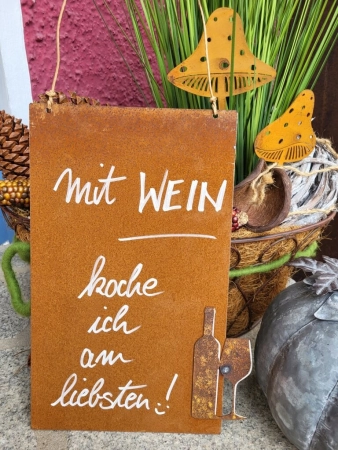 mit WEIN
koche
ich
am
liebsten :)!